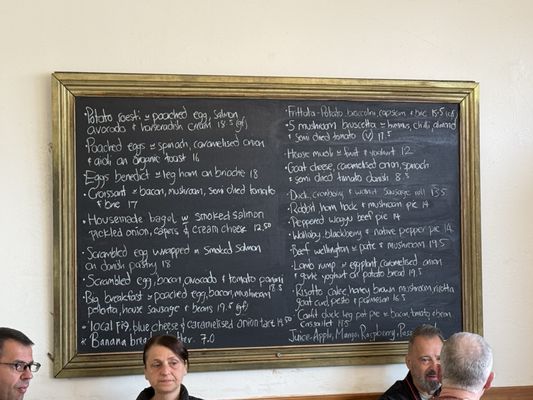 ·Potato roesti w poached egg, salmon
avocado & horseradish cream 18.5 (gf)
Poached eggs w spinach, caramelised onion
& aioli on organic toast 16
Eggs benedict w leg ham on brioche 18
·Croissant w bacon, mushroom, semi dried tomato
& brie 17
·Housemade bagel w smoked salmon
pickled onion, capers & cream cheese 12.50
·Scrambled egg wrapped in smoked salmon
on danish pastry 18
·Scrambled egg, bacon, avocado & tomato panini
18.5
·Big breakfast w poached egg, bacon, mushroom
polenta, house sausage & beans 19.5 (gf)
·local fig, blue cheese & caramelised onion tart 14.50
* Banana bread butter. 7.0
·Frittata-Potato broccolini capsicum & brie 15.5 (gf)
·5 mushroom bruscetta w hummus, chilli, almond
& semi dried tomato (v) 17.5
·House muesli w fruit & yoghurt 12
·Goat cheese, caramelised onion, spinach
& semi dried tomato danish 8.5
·Duck, cranberry & walnut sausage roll 13.5
·Rabbit, ham hock & mushroom pie 14
·Peppered wagyu beef pie 14
·Wallaby, blackberry & native pepper pie 14
·Beef wellington w pate & mushroom 19.5
·Lamb rump w eggplant, caramelised onion
& garlic yoghurt on potato bread 19.5
·Risotto cake, honey brown mushroom risotto
goat curd, pesto & parmesan 16.5
·Confit duck leg pot pie w bacon, tomato, bean
cassoulet 19.5
Juice-Apple, Mango, Raspberry,